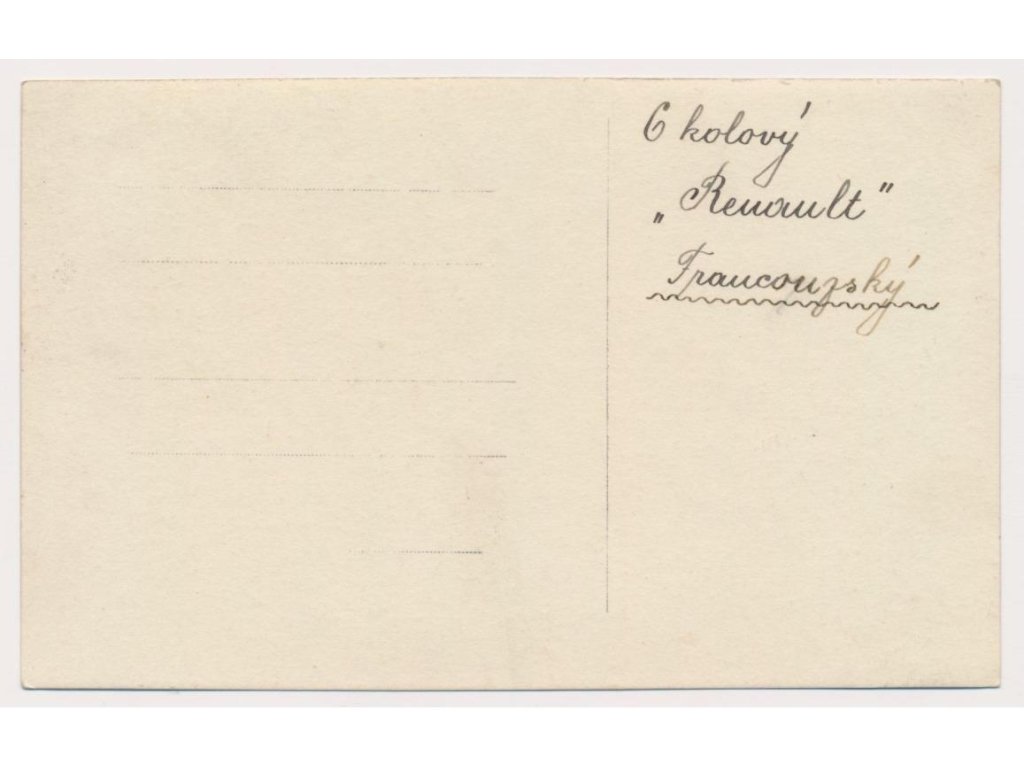 6 kolový
„Renault"
Francouzský